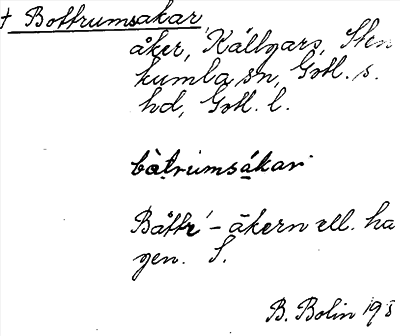 † Bottrumsakar
åker, Källgars, Sten
kumla sn, Gotl. s.
hd, Gotl. l.
bòtrumsákar
Båttr- åkern ell. ha
gen. S.
B. Bolin 193